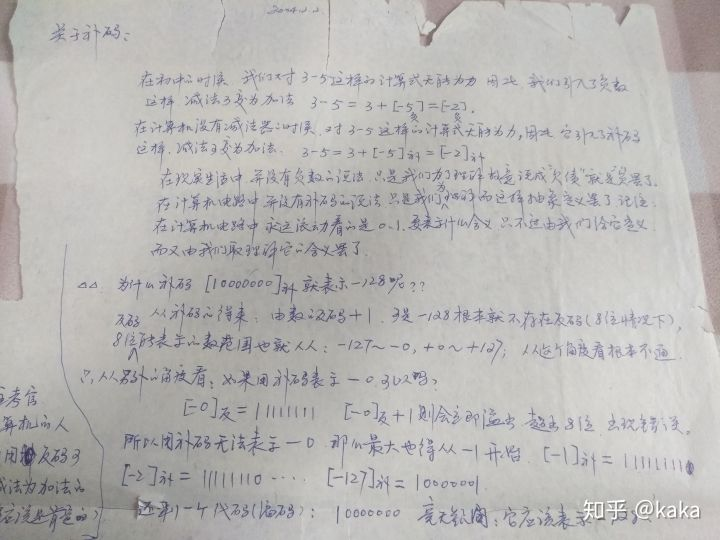 关于补码:
在初中的时候 我们对 3-5 这样的计算式无能为力 因此 我们引入了负数
这样 减法变为加法 3-5 = 3+[-5]负=[-2]负.
在计算机没有减法器的时候 对 3-5 这样的计算式无能为力, 因此 它引入了补码
这样, 减法变为加法. 3-5=3+[-5]补=[-2]补
在现实生活中 并没有负数的说法 只是我们为了理解 故意说成"负债"就是负罢了.
在计算机电路中 并没有补码的说法 只是我们为理解而这样抽象定义罢了 记住:
在计算机电路中 永远滚动着的是 0、1. 要表示什么含义 只不过由我们给它定义
而又由我们取理解它的含义罢了
△△ 为什么补码 [10000000]补 就表示 -128 呢??
从补码的得来: 由数的反码+1. 可是 -128 根本就不存在反码(8位情况下),
反码
8位能表示的数范围也就从: -127~-0, +0~+127; 从这个角度看根本不通
从另外的角度看: 如果用补码表示 -0 可以吗?
[-0]反=11111111 [-0]反+1 则会立即溢出 超出8位 出现错误。
所以用补码无法表示 -0 那么最大也得从 -1 开始. [-1]补=11111111
[-2]补=11111110 .... [-127]补=10000001.
还剩一个代码(编码): 10000000 毫无疑问: 它应该表示
考官
算机的人
用 反码
减法为加法的
知乎 @kaka